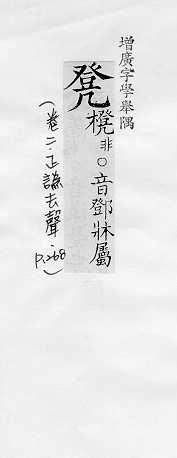 增廣字學舉隅
凳櫈非○音鄧牀屬
(卷二.正譌去聲.p.268)